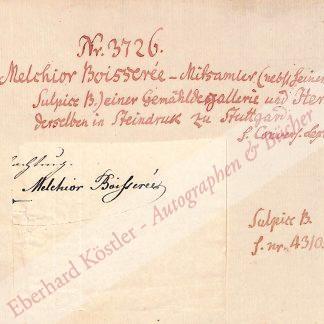 Nr. 3726.
Melchior Boisserée – Mitsamler (nebst seinem
Sulpice B.) einer Gemähldegallerie und Her
derselben in Steindruk zu Stuttgard
s. Convers. Lex
Melchior Boisserée
Sulpice B.
s. nr. 4310
Eberhard Köstler - Autographen & Bücher